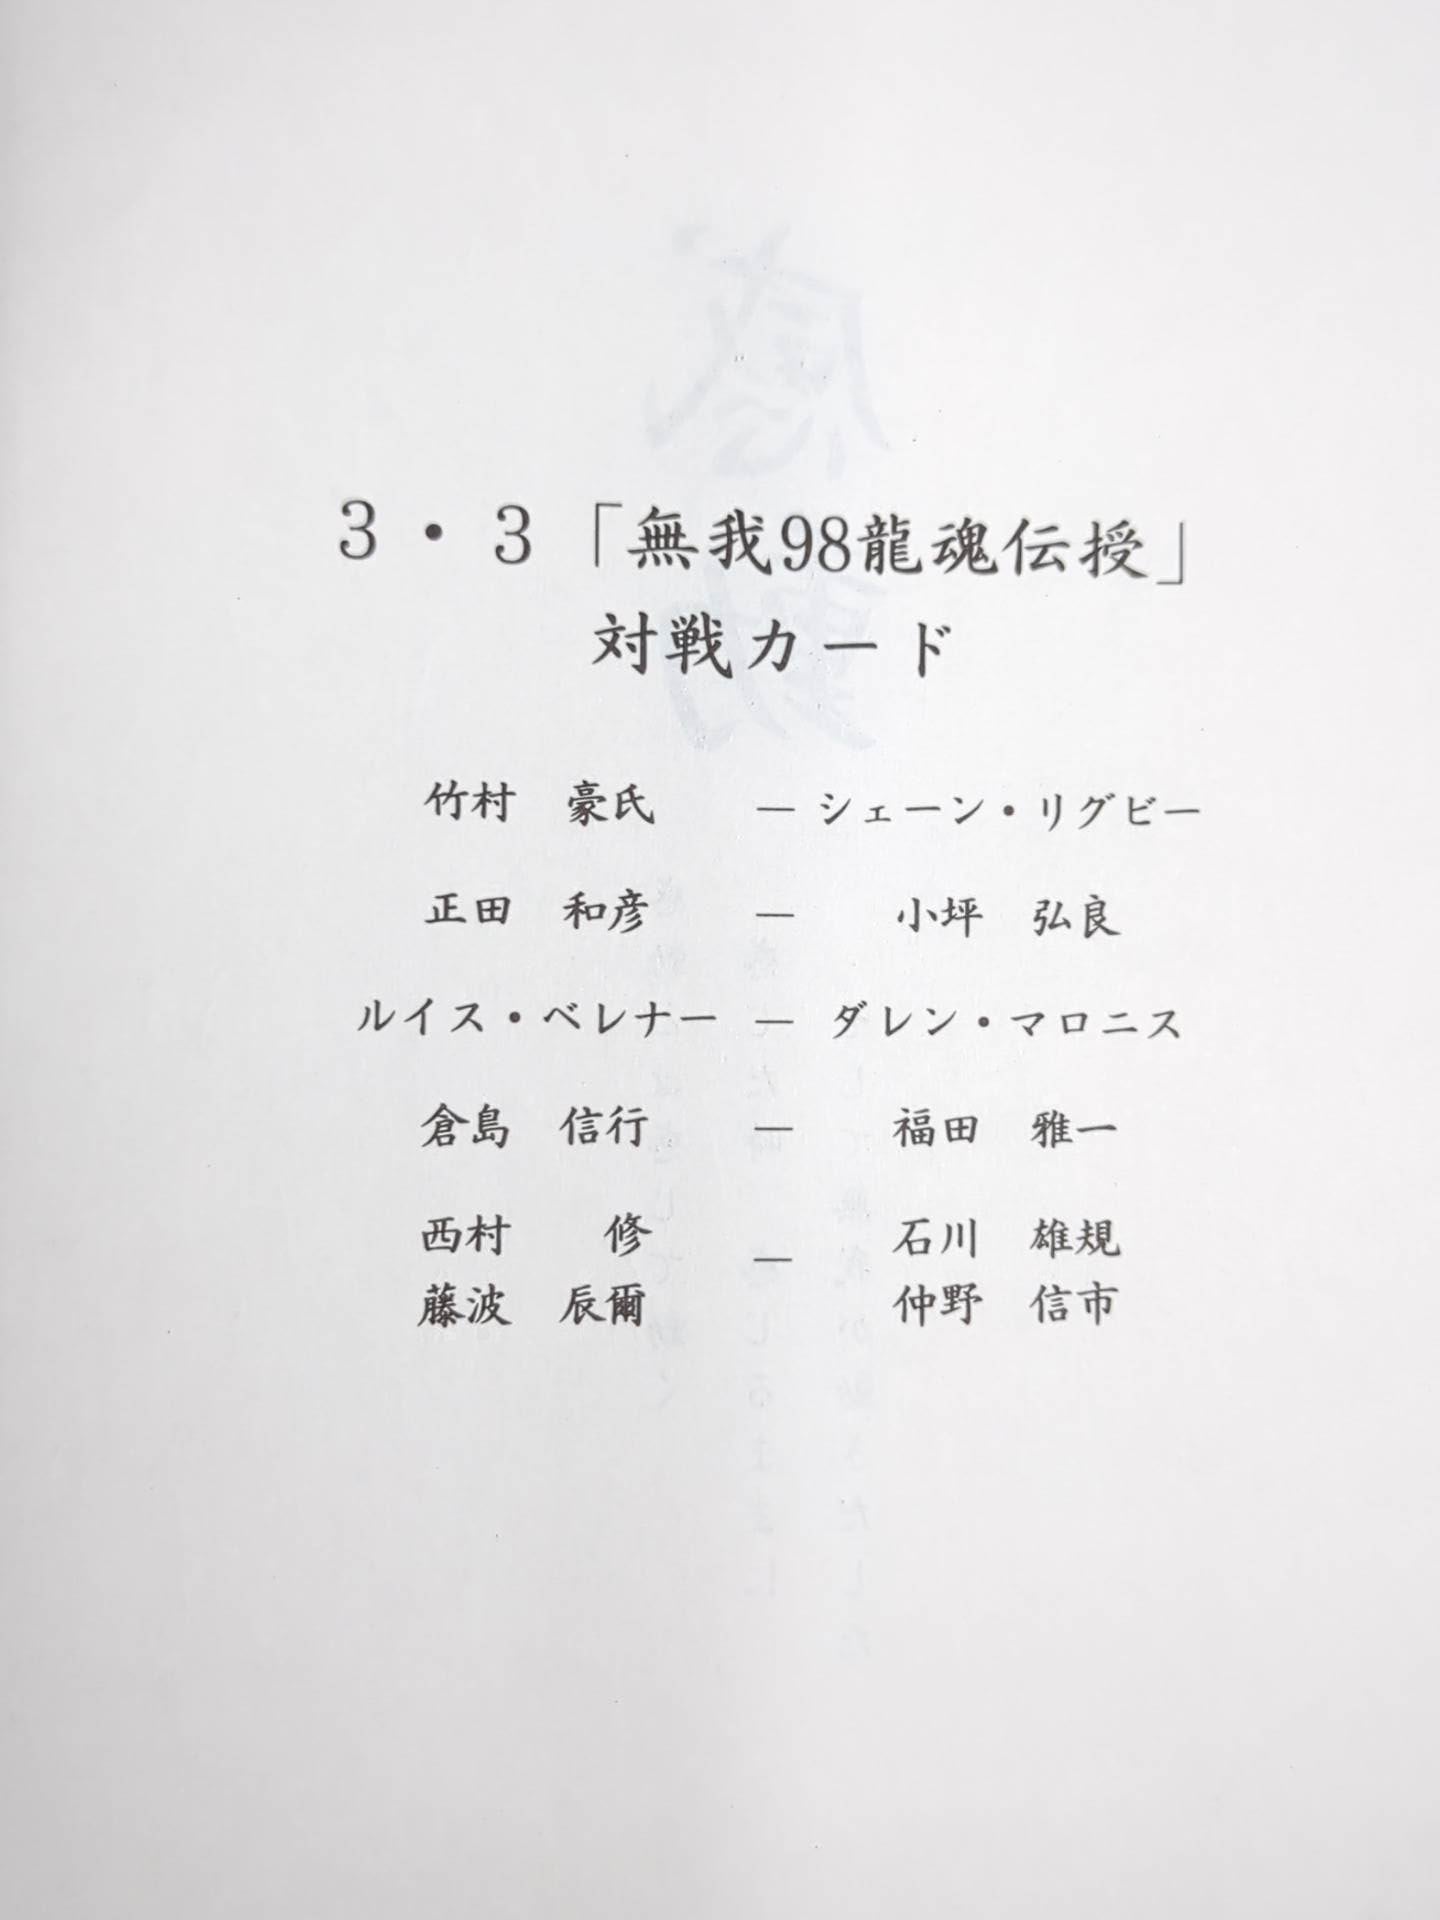 3・3「無我98龍魂伝授」
対戦カード
竹村 豪氏 ― シェーン・リグビー
正田 和彦 ― 小坪 弘良
ルイス・ベレナー ― ダレン・マロニス
倉島 信行 ― 福田 雅一
西村 修 ― 石川 雄規
藤波 辰爾 仲野 信市